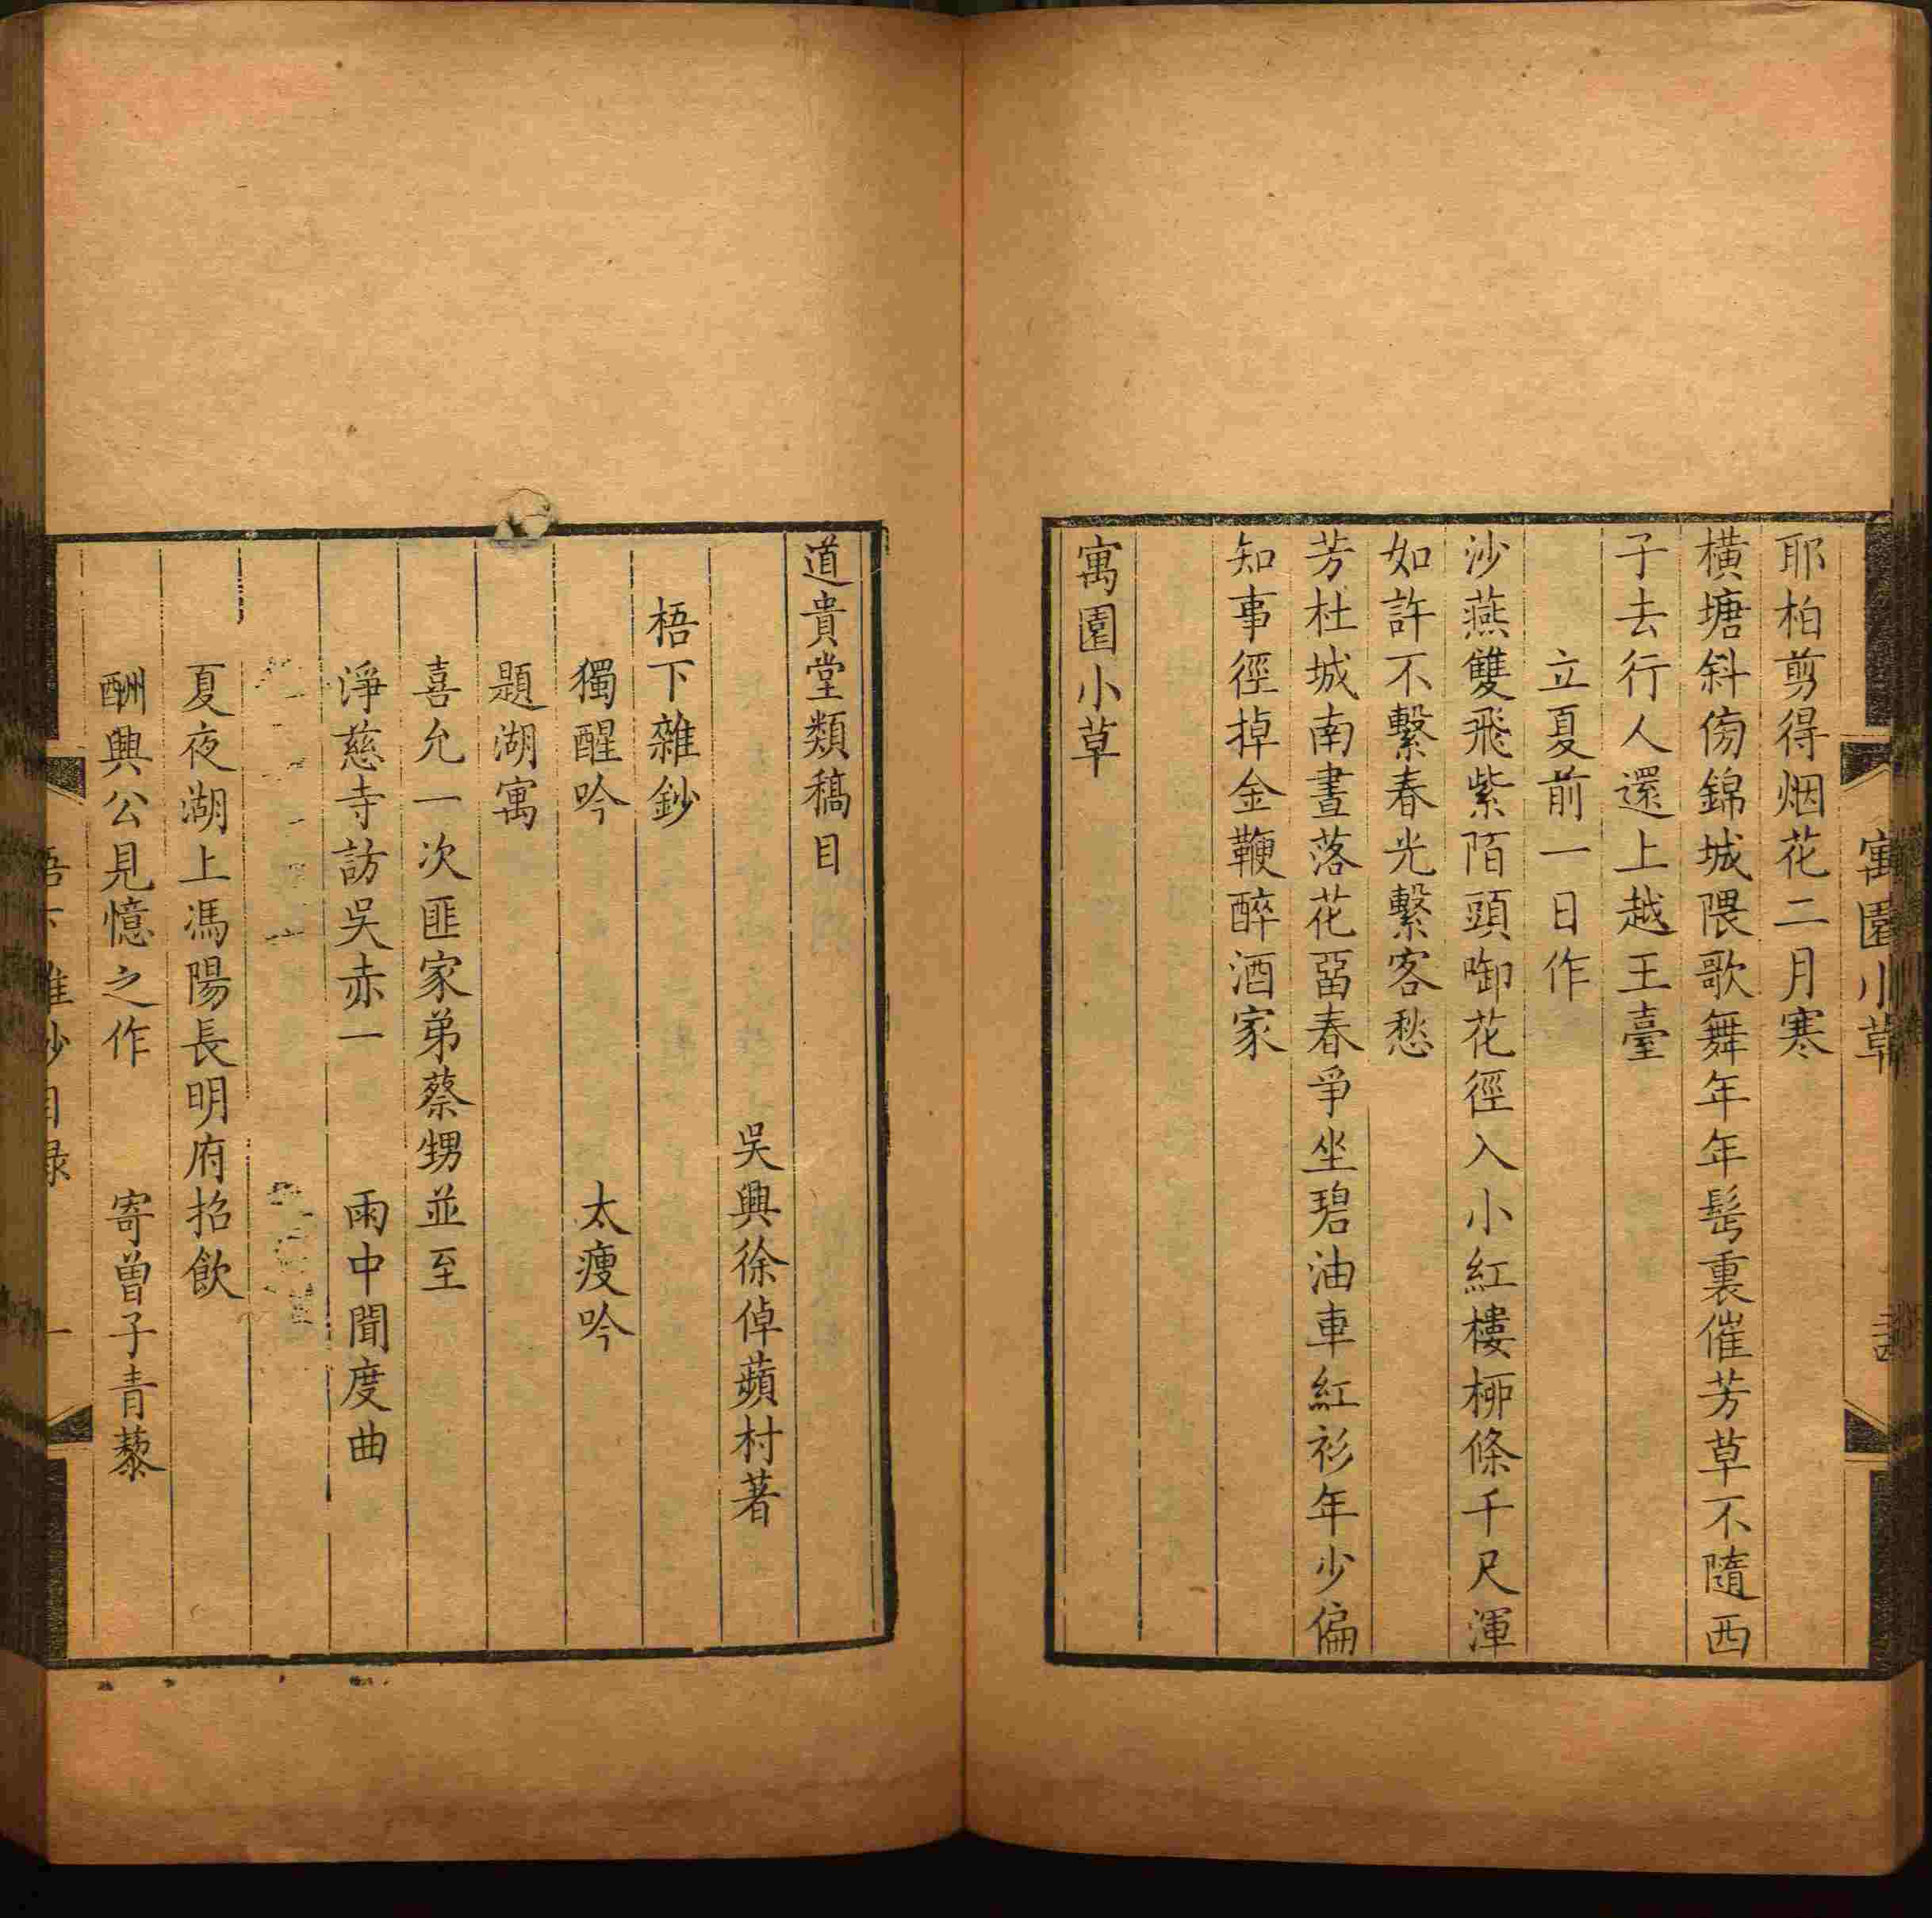 寓園小草
耶柏剪得烟花二月寒
橫塘斜傍錦城隈歌舞年年髩裏催芳草不隨西
子去行人還上越王臺
立夏前一日作
沙燕雙飛紫陌頭啣花徑入小紅樓柳條千尺渾
如許不繫春光繫客愁
芳杜城南晝落花畱春爭坐碧油車紅衫年少偏
知事徑掉金鞭醉酒家
寓園小草
道貴堂類稿目
吳興徐倬蘋村著
梧下雜鈔
獨醒吟 太瘦吟
題湖寓
喜允一次匪家弟蔡甥並至
淨慈寺訪吳赤一 雨中聞度曲
夏夜湖上馮陽長明府招飲
酬興公見憶之作 寄曾子青藜
梧下雜鈔目錄 一